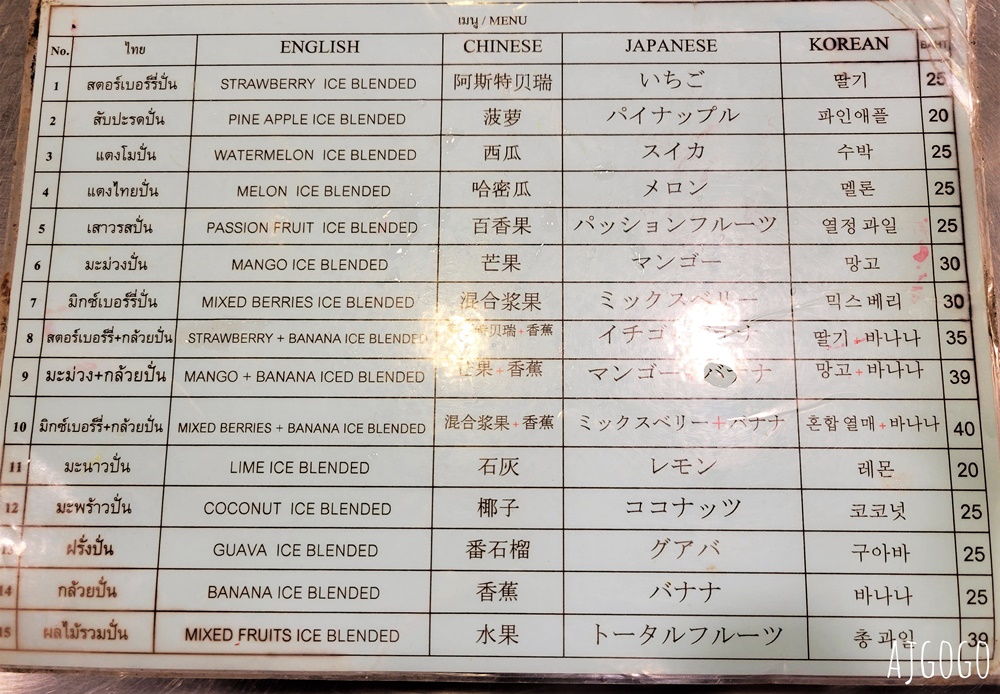 เมนู / MENU
No. ไทย ENGLISH CHINESE JAPANESE KOREAN BAHT
1 สตอร์เบอร์รี่ปั่น STRAWBERRY ICE BLENDED 阿斯特贝瑞 いちご 딸기 25
2 สับปะรดปั่น PINE APPLE ICE BLENDED 菠萝 パイナップル 파인애플 20
3 แตงโมปั่น WATERMELON ICE BLENDED 西瓜 スイカ 수박 25
4 แตงไทยปั่น MELON ICE BLENDED 哈密瓜 メロン 멜론 25
5 เสาวรสปั่น PASSION FRUIT ICE BLENDED 百香果 パッションフルーツ 열정 과일 25
6 มะม่วงปั่น MANGO ICE BLENDED 芒果 マンゴー 망고 30
7 มิกซ์เบอร์รี่ปั่น MIXED BERRIES ICE BLENDED 混合浆果 ミックスベリー 믹스 베리 30
8 สตอร์เบอร์รี่+กล้วยปั่น STRAWBERRY + BANANA ICE BLENDED 贝瑞+香蕉 イチゴ 딸기+바나나 35
9 มะม่วง+กล้วยปั่น MANGO + BANANA ICED BLENDED 芒果+香蕉 マンゴー 망고+바나나 39
10 มิกซ์เบอร์รี่+กล้วยปั่น MIXED BERRIES + BANANA ICE BLENDED 混合浆果+香蕉 ミックスベリー+バナナ 혼합 열매+바나나 40
11 มะนาวปั่น LIME ICE BLENDED 石灰 レモン 레몬 20
12 มะพร้าวปั่น COCONUT ICE BLENDED 椰子 ココナッツ 코코넛 25
13 ฝรั่งปั่น GUAVA ICE BLENDED 番石榴 グアバ 구아바 25
14 กล้วยปั่น BANANA ICE BLENDED 香蕉 バナナ 바나나 25
15 ผลไม้รวมปั่น MIXED FRUITS ICE BLENDED 水果 トータルフルーツ 총 과일 39
AJGOGO